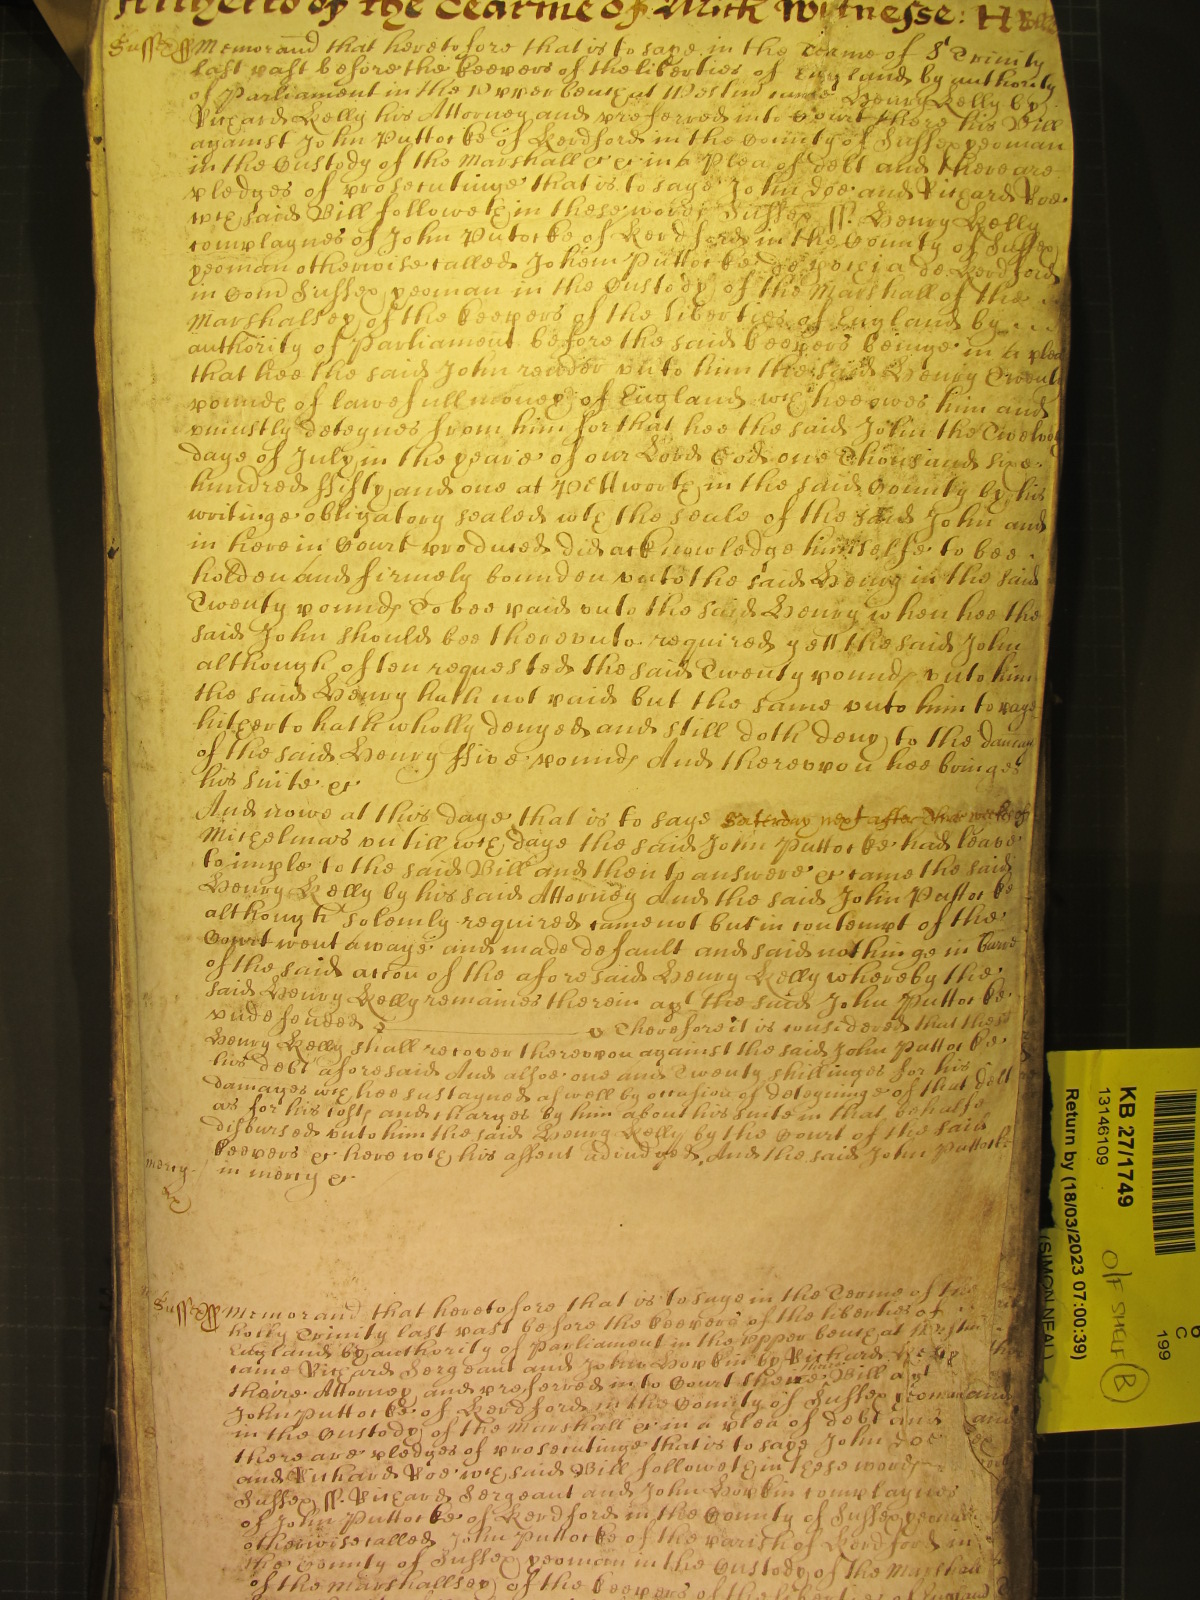 of the Tearme of Mich Witnesse: H Rolle
Sussex ss Memorand that heretofore that is to saye in the Tearme of St Trinity
last past before the keepers of the liberties of England by authority
of Parliament in the vpper bench at Westm came Henry Kelly by
Richard Kelly his Attorney and preferred into Court there his Bill
against John Puttocke of Kerdford in the County of Sussex yeoman
in the Custody of the Marshall &c &c in a Plea of debt and there are
pledges of prosecutinge that is to saye John Doe and Richard Roe
wch said Bill followeth in these words Sussex ss. Henry Kelly
complaynes of John Puttocke of Kerdford in the County of Sussex
yeoman otherwise called Johem Puttocke de de Kerdford
in Com Sussex yeoman in the Custody of the Marshall of the
Marshalsey of the keepers of the liberties of England by
authority of Parliament before the said keepers beinge in a plea
that hee the said John render vnto him the said Henry Twenty
pounds of lawefull money of England wch hee owes him and
vniustly deteynes from him for that hee the said John the Twelveth
daye of July in the yeare of our Lord God one Thousand sixe
hundred ffifty and one at Pettworth in the said County by his
writinge obligatory sealed wth the seale of the said John and
in here in Court produced did acknowledge himselfe to bee
holden and firmely bounden vnto the said Henry in the said
Twenty pounds To bee paid vnto the said Henry when hee the
said John should bee therevnto required yett the said John
although often requested the said Twenty pounds vnto him
the said Henry hath not paid but the same vnto him to paye
hitherto hath wholly denyed and still doth deny to the damage
of the said Henry ffive pounds And therevpon hee bringes
his suite &c
And nowe at this daye that is to saye Saturday next after Three weekes of
Michelmas vntill wch daye the said John Puttocke had leave
to imple to the said Bill and then to answere &c came the said
Henry Kelly by his said Attorney And the said John Puttocke
although solemly required came not but in contempt of the
Court went awaye and made default and said nothinge in barre
of the said accon of the aforesaid Henry Kelly whereby the
said Henry Kelly remaines therein agt the said John Puttocke
vndefended Therefore it is considered that the sd
Henry Kelly shall recover therevpon against the said John Puttocke
his debt aforesaid And alsoe one and Twenty shillinges for his
damages wch hee sustayned aswell by occasion of deteyninge of that debt
as for his costs and charges by him about his suite in that behalfe
disbursed vnto him the said Henry Kelly by the Court of the said
keepers &c here wth his assent adiudged And the said John Puttocke
mercy in mercy &c
&c
Sussex ss Memorand that heretofore that is to saye in the Terme of the
holly Trinity last past before the keepers of the liberties of
England by authority of Parliament in the vpper bench at Westm
came Richard Sergeant and John Howkin by Richard Kelly
theire Attorney and preferred into Court theire Bill agt
John Puttocke of Kerdford in the County of Sussex yeoman
in the Custody of the Marshall &c in a plea of debt and
there are pledges of prosecutinge that is to saye John Doe
and Richard Roe wch said Bill followeth in these words
Sussex ss. Richard Sergeant and John Howkin complaynes
of John Puttocke of Kerdford in the County of Sussex yeoman
otherwise called John Puttocke of the parish of Kerdford in
the County of Sussex yeoman in the Custody of the Marshall
of the Marshallsey of the keepers of the liberties of England
KB 27/1749
13146109
Return by (18/03/2023 07:00:39)
(SIMON NEAL)
O/F SHELF B
6
C
199